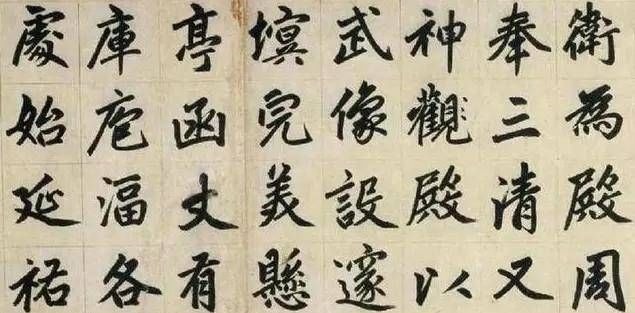 衛為殿周
奉三清又
神觀殿以
武像設邃
塓完美懸
亭函丈有
庫庖湢各
處始延祐